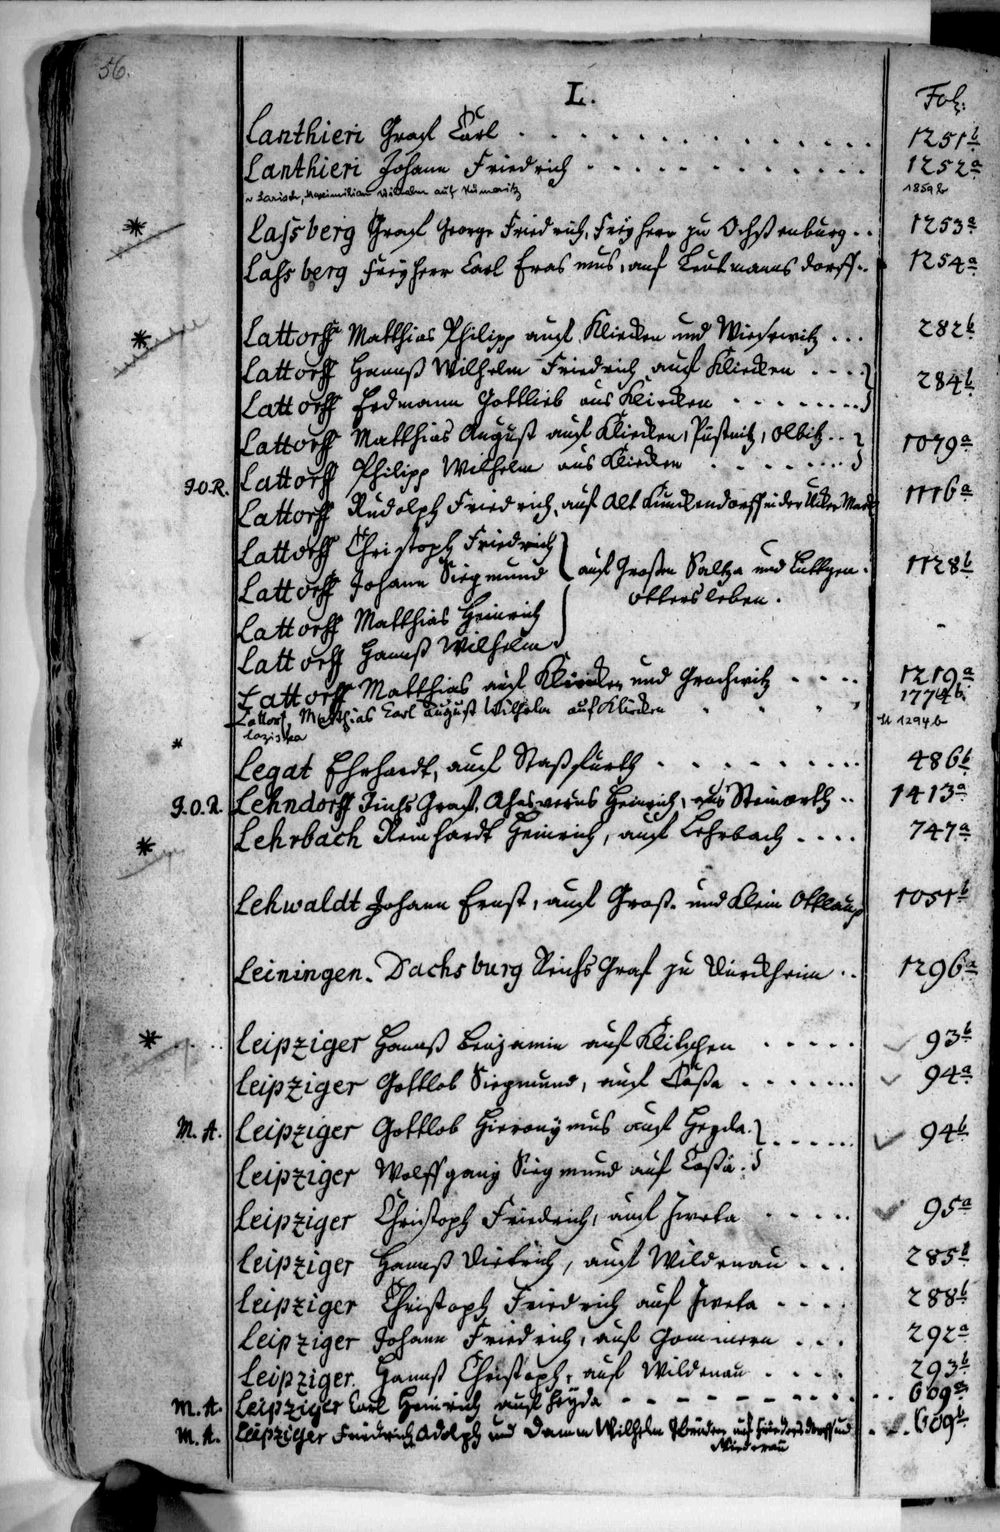 56.
L.
Fol:
Lanthieri Graf Carl . . . . . . . . . . . 1251b
Lanthieri Johann Friedrich . . . . . . . . . . 1252a
v Larisch, Maximilian Wilhelm auf 1859b
* Lassberg Graf George Friedrich, Freyherr zu Ochssenburg . . 1253a
Lassberg Freyherr Carl Erasmus, auf Leutmannsdorff . . 1254a
* Lattorff Matthias Philipp auf Kliecken und . . . 282b
Lattorff Hannß Wilhelm Friedrich auf Kliecken . . . . } 284b
Lattorff Erdmann Gottlieb aus Kliecken . . . . . . . . }
Lattorff Matthias August auf Kliecken, Olbitz . . } 1079a
Lattorff Philipp Wilhelm aus Kliecken . . . . . . . }
J.O.R. Lattorff Rudolph Friedrich, auf Alt Kunckendorff in der Ucker Marck 1116a
Lattorff Christoph Friedrich }
Lattorff Johann Siegmund } auf Großen Saltza und Luttgen- 1128b
ottersleben.
Lattorff Matthias Heinrich }
Lattorff Hannß Wilhelm }
Lattorff Matthias auf Kliecken und Grochwitz . . . . 1219a
Lattorf, Matthias Carl August Wilhelm auf Kliecken . . . . 1774b
* Laziska 1294b
Legat Ehrhardt, auf Staßfurth . . . . . . . . . 486b
J.O.R. Lehndorff Reichs Graf, Ahasverus Heinrich, aus Steinorth . . 1413a
* Lehrbach Reinhardt Heinrich, auf Lehrbach . . . . 747a
Lehwaldt Johann Ernst, auf Groß- und Klein Ottlau 1051b
Leiningen-Dachsburg Reichs Graf zu Dürckheim . . 1296a
* Leipziger Hannß Benjamin auf Klitzschen . . . . . 93b
Leipziger Gottlob Siegmund, auf Coßa . . . . . . . 94a
M. A. Leipziger Gottlob Hieronymus auf Heyda . } . . . . . 94b
Leipziger Wolffgang Siegmund auf Coßa . }
Leipziger Christoph Friedrich, auf Zweta . . . . . 95a
Leipziger Hannß Dietrich, auf Wildenau . . . 285b
Leipziger Christoph Friedrich auf Zweta . . . . 288b
Leipziger Johann Friedrich, auf Gommern . . . 292a
Leipziger Hannß Christoph, auf Wildenau . . . . 293b
M. A. Leipziger Carl Heinrich auf Heyda . . . . . . . . . 609a
M. A. Leipziger Friedrich Adolph und Damm Wilhelm Gebrüder auf und . . 609b
Niederau